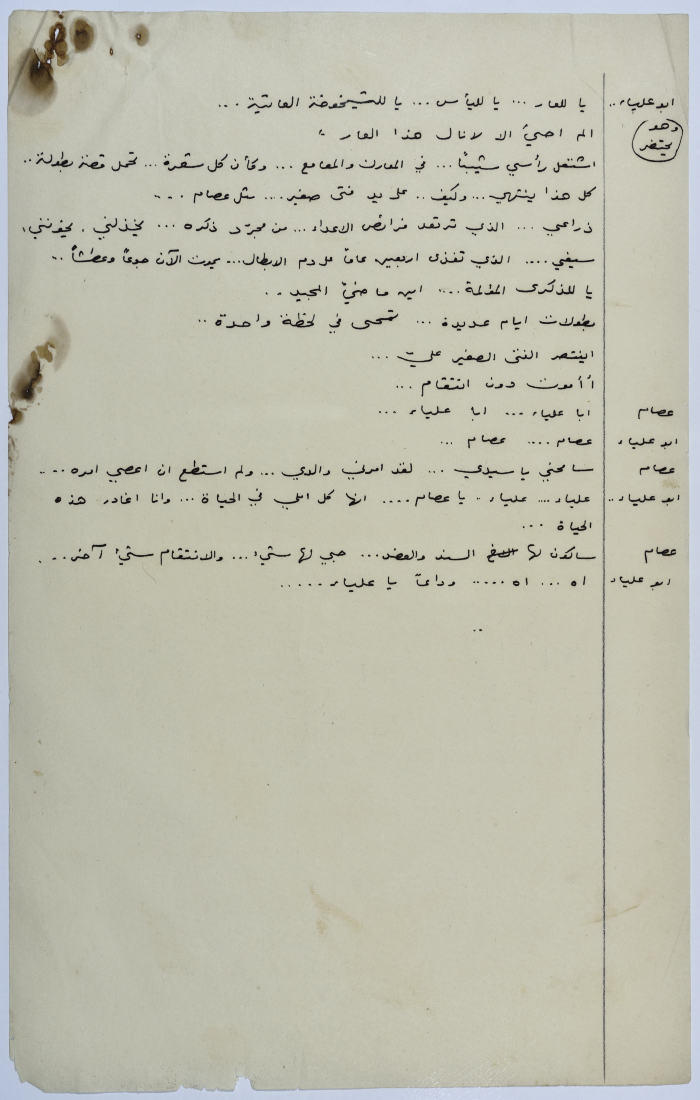 ابو علياء .. يا للعار ... يا لليأس ... يا للشيخوخة العاتية ...
(وهو يحتضر) الم احيَ الا لانال هذا العار ..
اشتعل رأسي شيباً ... في المعارك والمعامع ... وكأن كل شعرة ... تحمل قصة بطولة ..
كل هذا ينتهي ... وكيف .. على يد فتى صغير .... مثل عصام ...
ذراعي ... الذي ترتعد فرائص الاعداء ... من مجرّد ذكره ... يخذلني . يخونني .
سيفي .... الذي تغذى اربعين عاماً على دم الابطال ... يموت الآن جوعاً وعطشاً ..
يا للذكرى المؤلمة .... اين ماضيّ المجيد ..
بطولات ايام عديدة ... تمحى في لحظة واحدة ..
اينتصر الفتى الصغير عليّ ...
أأموت دون انتقام ...
عصام ابا علياء ... ابا علياء ...
ابو علياء عصام .... عصام ...
عصام سامحني يا سيدي ... لقد امرني والدي ... ولم استطع ان اعصي امره ....
ابو علياء .. علياء .... علياء .. يا عصام .... انها كل املي في الحياة ... وانا اغادر هذه
الحياة ...
عصام ساكون لها السند والعضد ... حبي لها شيء ... والانتقام شيء آخر ...
ابو علياء اه ... اه ..... وداعاً يا علياء .....
..